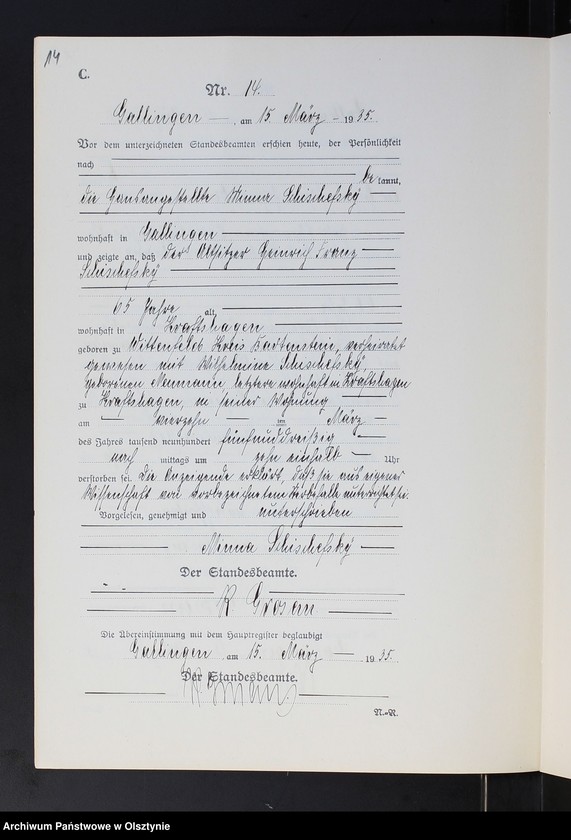 14
C.
Nr. 14.
Gallingen, am 15. März 1935.
Vor dem unterzeichneten Standesbeamten erschien heute, der Persönlichkeit
nach
be kannt,
die Hausangestellte Minna Schischefsky
wohnhaft in Gallingen
und zeigte an, daß der Altsitzer Heinrich Franz
Schischefsky
65 Jahre alt,
wohnhaft in Kraftshagen
geboren zu Wittenfeld Kreis Bartenstein, verheiratet
gewesen mit Wilhelmine Schischefsky,
geborenen Neumann, letztere wohnhaft in Kraftshagen
zu Kraftshagen, in seiner Wohnung
am vierzehn ten März
des Jahres tausend neunhundert fünfunddreißig
nach mittags um zehn einhalb Uhr
verstorben sei. Die Anzeigende erklärt, daß sie aus eigener
Wissenschaft von vorbezeichnetem Sterbefalle unterrichtet sei.
Vorgelesen, genehmigt und unterschrieben
Minna Schischefsky
Der Standesbeamte.
Die Übereinstimmung mit dem Hauptregister beglaubigt
Gallingen, am 15. März 1935.
Der Standesbeamte.
N.-R.
Archiwum Państwowe w Olsztynie